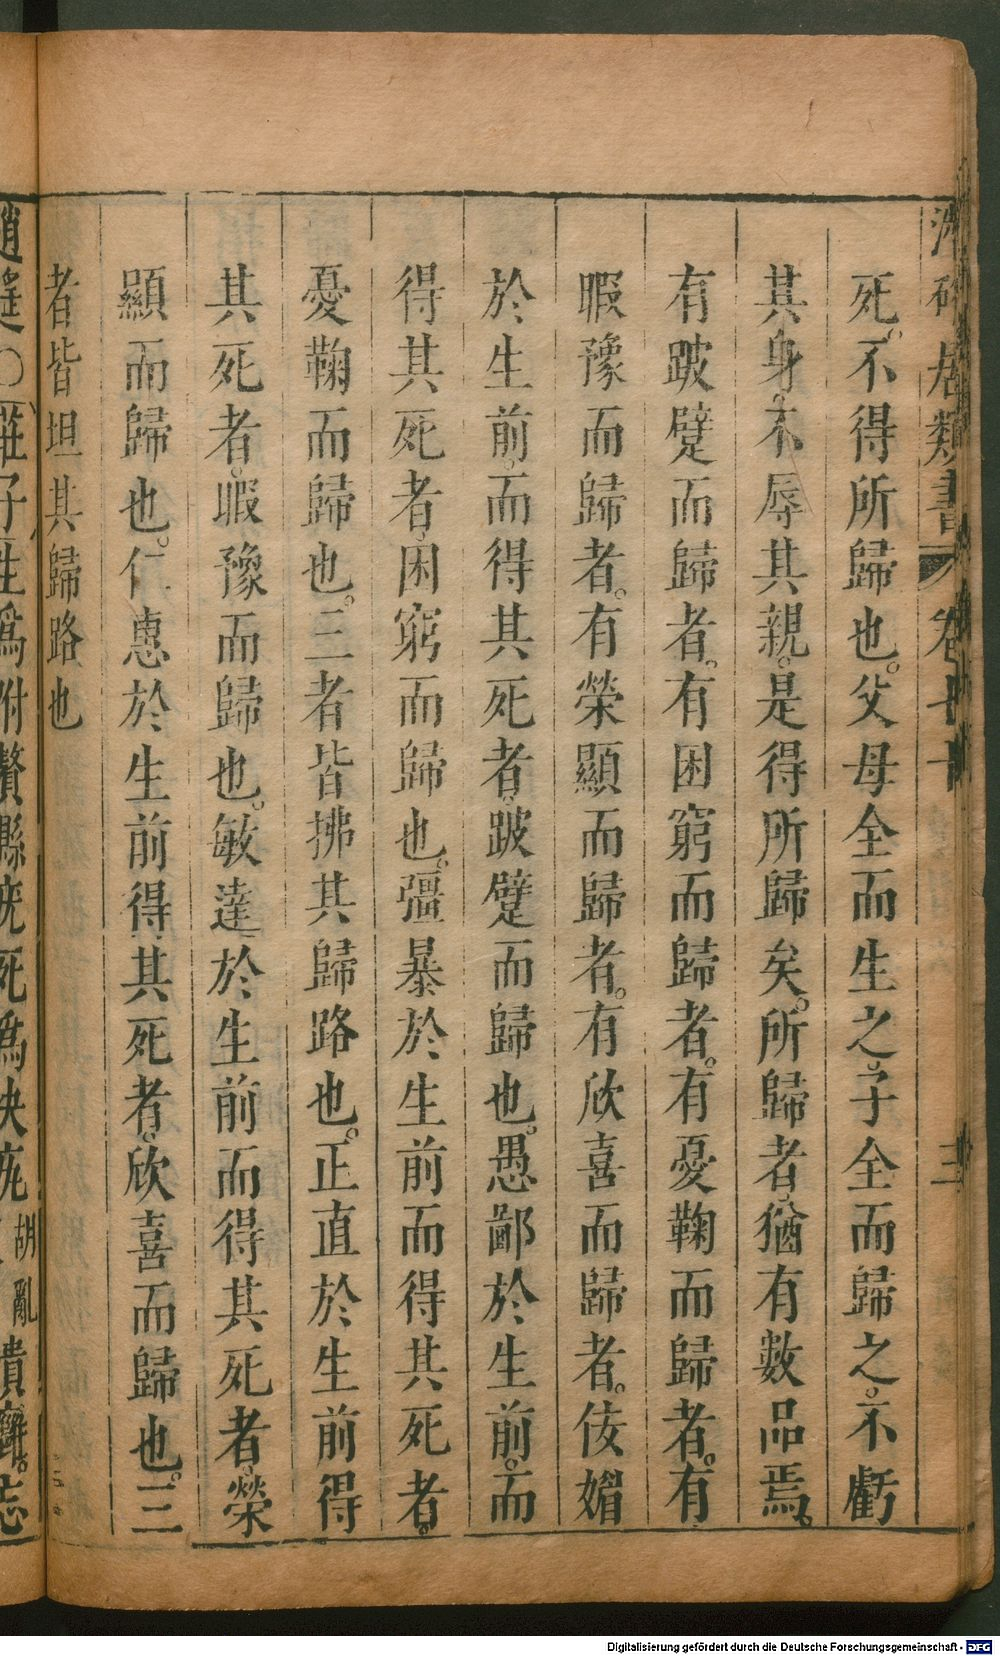 居類書 卷十一 三
死不得所歸也父母全而生之子全而歸之不虧
其身不辱其親是得所歸矣所歸者猶有數品焉
有跛躄而歸者有困窮而歸者有憂鞠而歸者有
暇豫而歸者有榮顯而歸者有欣喜而歸者伎媚
於生前而得其死者跛躄而歸也愚鄙於生前而
得其死者困窮而歸也彊暴於生前而得其死者
憂鞠而歸也三者皆拂其歸路也正直於生前得
其死者暇豫而歸也敏達於生前而得其死者榮
顯而歸也仁惠於生前得其死者欣喜而歸也三
者皆坦其歸路也
逍遙○莊子生為附贅縣疣死為決疣胡亂
Digitalisierung gefördert durch die Deutsche Forschungsgemeinschaft - DFG